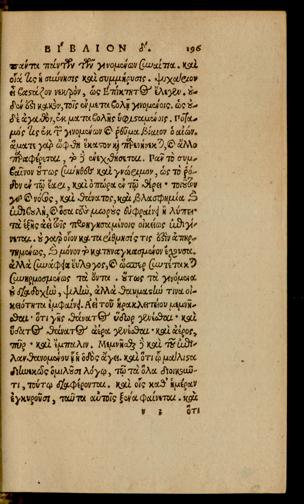 ΒΙΒΛΙΟΝ δ'. 196
πάντα πάντων τῶν γινομένων συναίτια. καὶ
οἵα τις ἡ σύννησις καὶ συμμήρυσις. Ψυχάριον
εἶ βαστάζον νεκρὸν, ὡς Ἐπίκτητος ἔλεγεν. οὐ-
δέν ἐστι κακὸν, τοῖς ἐν μεταβολῇ γινομένοις. ὡς οὐ-
δὲ ἀγαθὸν, ἐκ μεταβολῆς ὑφισταμένοις. Ποτα-
μός τις ἐκ τῶν γινομένων καὶ ῥεῦμα βίαιον ὁ αἰών.
ἅμα τε γὰρ ὤφθη ἕκαστον καὶ παρενήνεκται, καὶ ἄλλο
παραφέρεται, τὸ δὲ ἐνεχθήσεται. Πᾶν τὸ συμ-
βαῖνον οὕτως σύνηθες καὶ γνώριμον, ὡς τὸ ῥό-
δον ἐν τῷ ἔαρι, καὶ ὀπώρα ἐν τῷ θέρει. τοιοῦτον
γὰρ καὶ νόσος, καὶ θάνατος, καὶ βλασφημία καὶ
ἐπιβουλὴ, καὶ ὅσα τοὺς μωροὺς εὐφραίνει ἢ λυπεῖ.
τὰ ἑξῆς ἀεὶ τοῖς προηγησαμένοις οἰκείως ἐπιγί-
νεται. οὐ γὰρ οἷον καταρίθμησίς τις ἐστὶν ἀπηρ-
τημένως, καὶ μόνον τὸ κατηναγκασμένον ἔχουσα.
ἀλλὰ συνάφεια εὔλογος, καὶ ὥσπερ συντέτακται
συνηρμοσμένως τὰ ὄντα. οὕτως τὰ γινόμενα
οὐ διαδοχὴν, ψιλὴν, ἀλλὰ θαυμαστήν τινα οἰ-
κειότητα ἐμφαίνει. Ἀεὶ τοῦ Ἡρακλειτείου μεμνῆ-
σθαι. ὅτι γῆς θάνατος ὕδωρ γενέσθαι. καὶ
ὕδατος θάνατος ἀέρα γενέσθαι. καὶ ἀέρος,
πῦρ. καὶ ἔμπαλιν. Μεμνῆσθαι δὲ καὶ τοῦ ἐπι-
λανθανομένου ᾗ ἡ ὁδὸς ἄγει. καὶ ὅτι ᾧ μάλιστα
διηνεκῶς ὁμιλοῦσι λόγῳ, τῷ τὰ ὅλα διοικοῦν-
τι, τούτῳ διαφέρονται. καὶ οἷς καθ' ἡμέραν
ἐγκυροῦσι, ταῦτα αὐτοῖς ξένα φαίνεται. καὶ
ὅτι